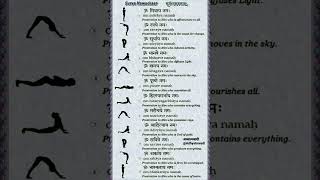 Surya Namaskaar
ॐ मित्राय नमः
om mitraya namah
Prostration to Him who is affectionate to all.
ॐ रवये नमः
om ravaye namah
Prostration to Him who is the cause for change.
ॐ सूर्याय नमः
om suryaya namah
Prostration to Him who induces activity.
ॐ भानवे नमः
om bhanave namah
Prostration to Him who diffuses Light.
ॐ खगाय नमः
om khagaya namah
Prostration to Him who moves in the sky.
ॐ पूष्णे नमः
om pusne namah
Prostration to Him who nourishes all.
ॐ हिरण्यगर्भाय नमः
om hiranyagarbhaya namah
Prostration to Him who contains everything.
ॐ मरीचये नमः
om maricaye namah
Prostration to Him who possesses rays.
ॐ आदित्याय नमः
om adityaya namah
Prostration to Him who is God of gods.
ॐ सवित्रे नमः
om savitre namah
Prostration to Him who produces everything.
ॐ अर्काय नमः
om arkaya namah
Prostration to Him who is fit to be worshipped.
ॐ भास्कराय नमः
om bhaskaraya namah
Prostration to Him who is the cause of lustre.
diffuses Light.
moves in the sky.
nourishes all.
namah
contains everything.